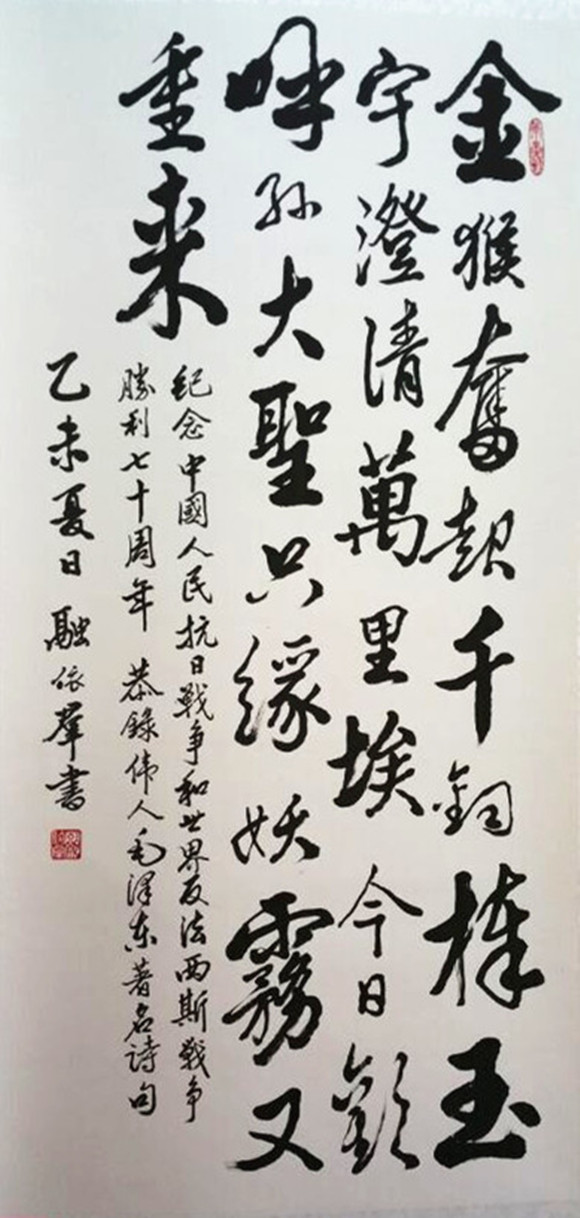 金猴奮起千鈞棒玉
宇澄清萬里埃今日歡
呼孙大聖只緣妖霧又
重来
紀念中國人民抗日戰争和世界反法西斯戰争
勝利七十周年 恭錄伟人毛泽东著名詩句
乙未夏日 融依羣書